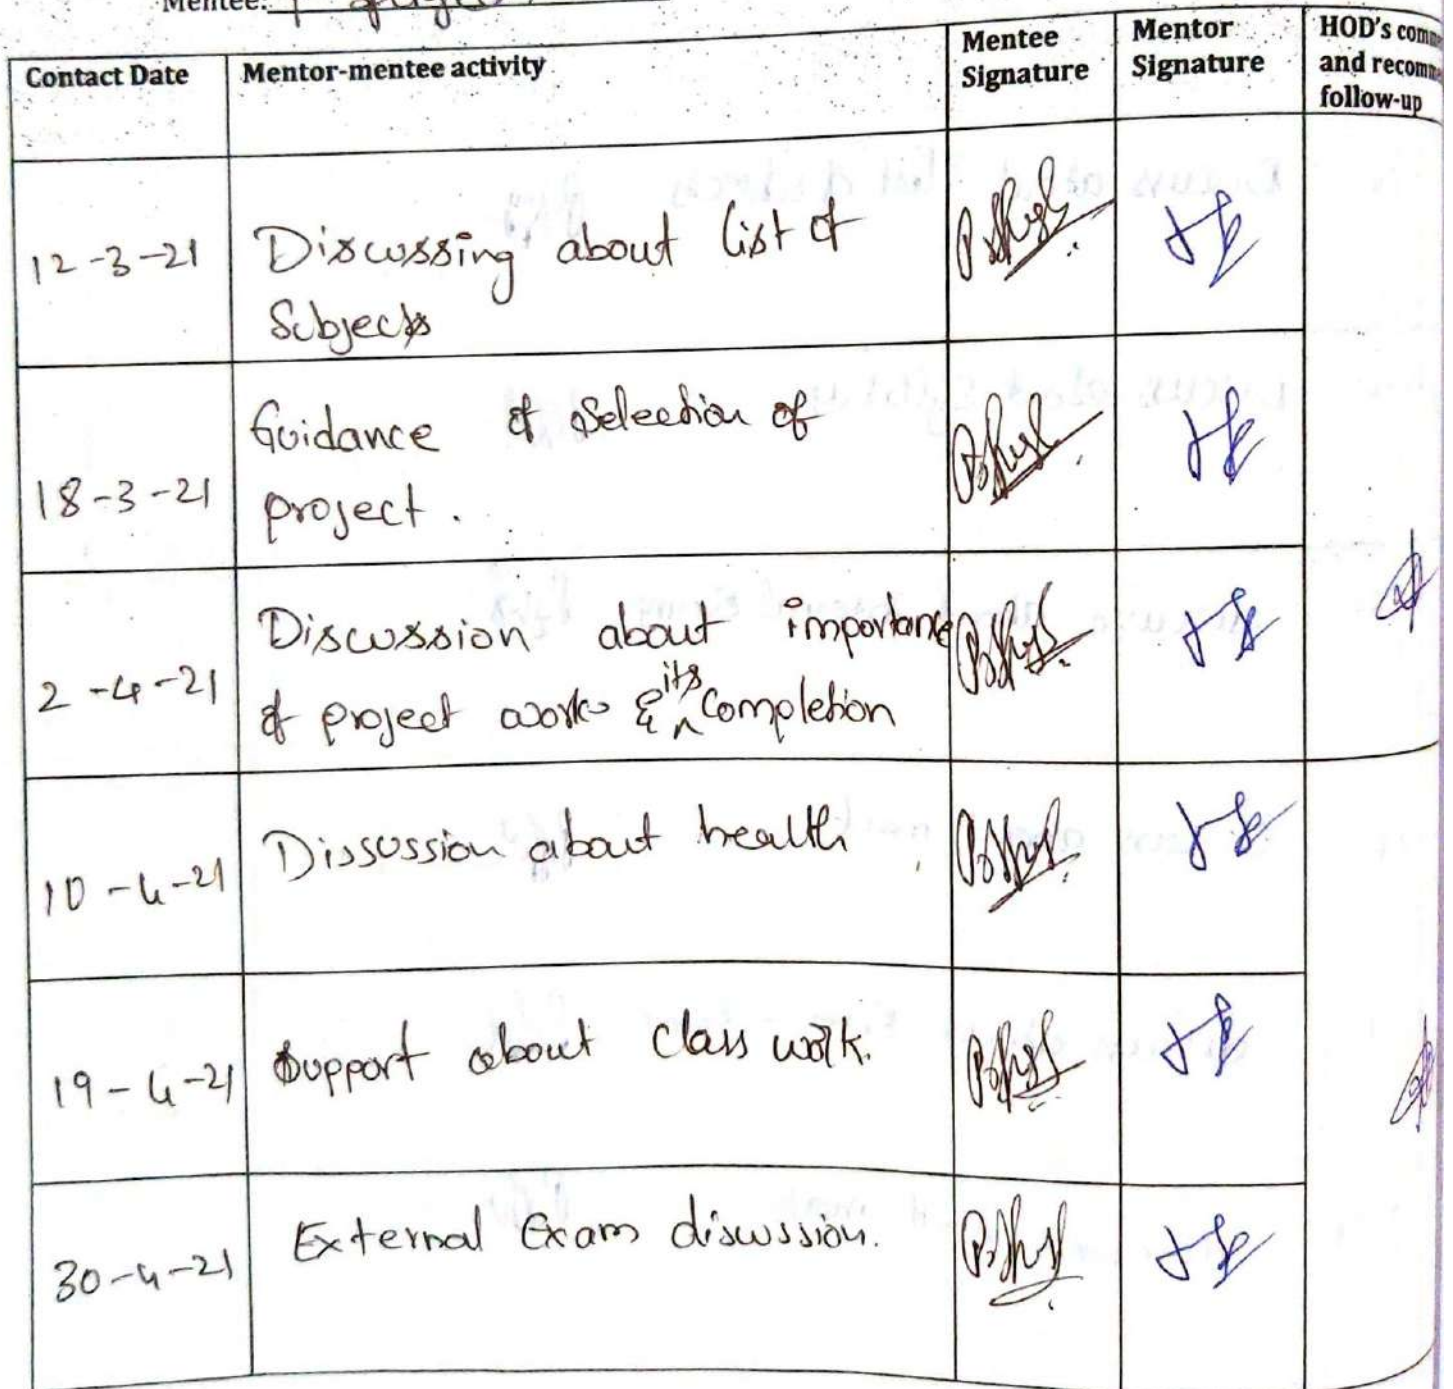 Mentee:
Contact Date
Mentor-mentee activity
Mentee
Signature
Mentor
Signature
HOD's
and
follow-up
12-3-21
Discussing about list of
Subjects
18-3-21
Guidance of selection of
project.
2-4-21
Discussion about importance
of project work & its completion
10-4-21
Dissussion about health
19-4-21
Support about class work.
30-4-21
External Exam discussion.